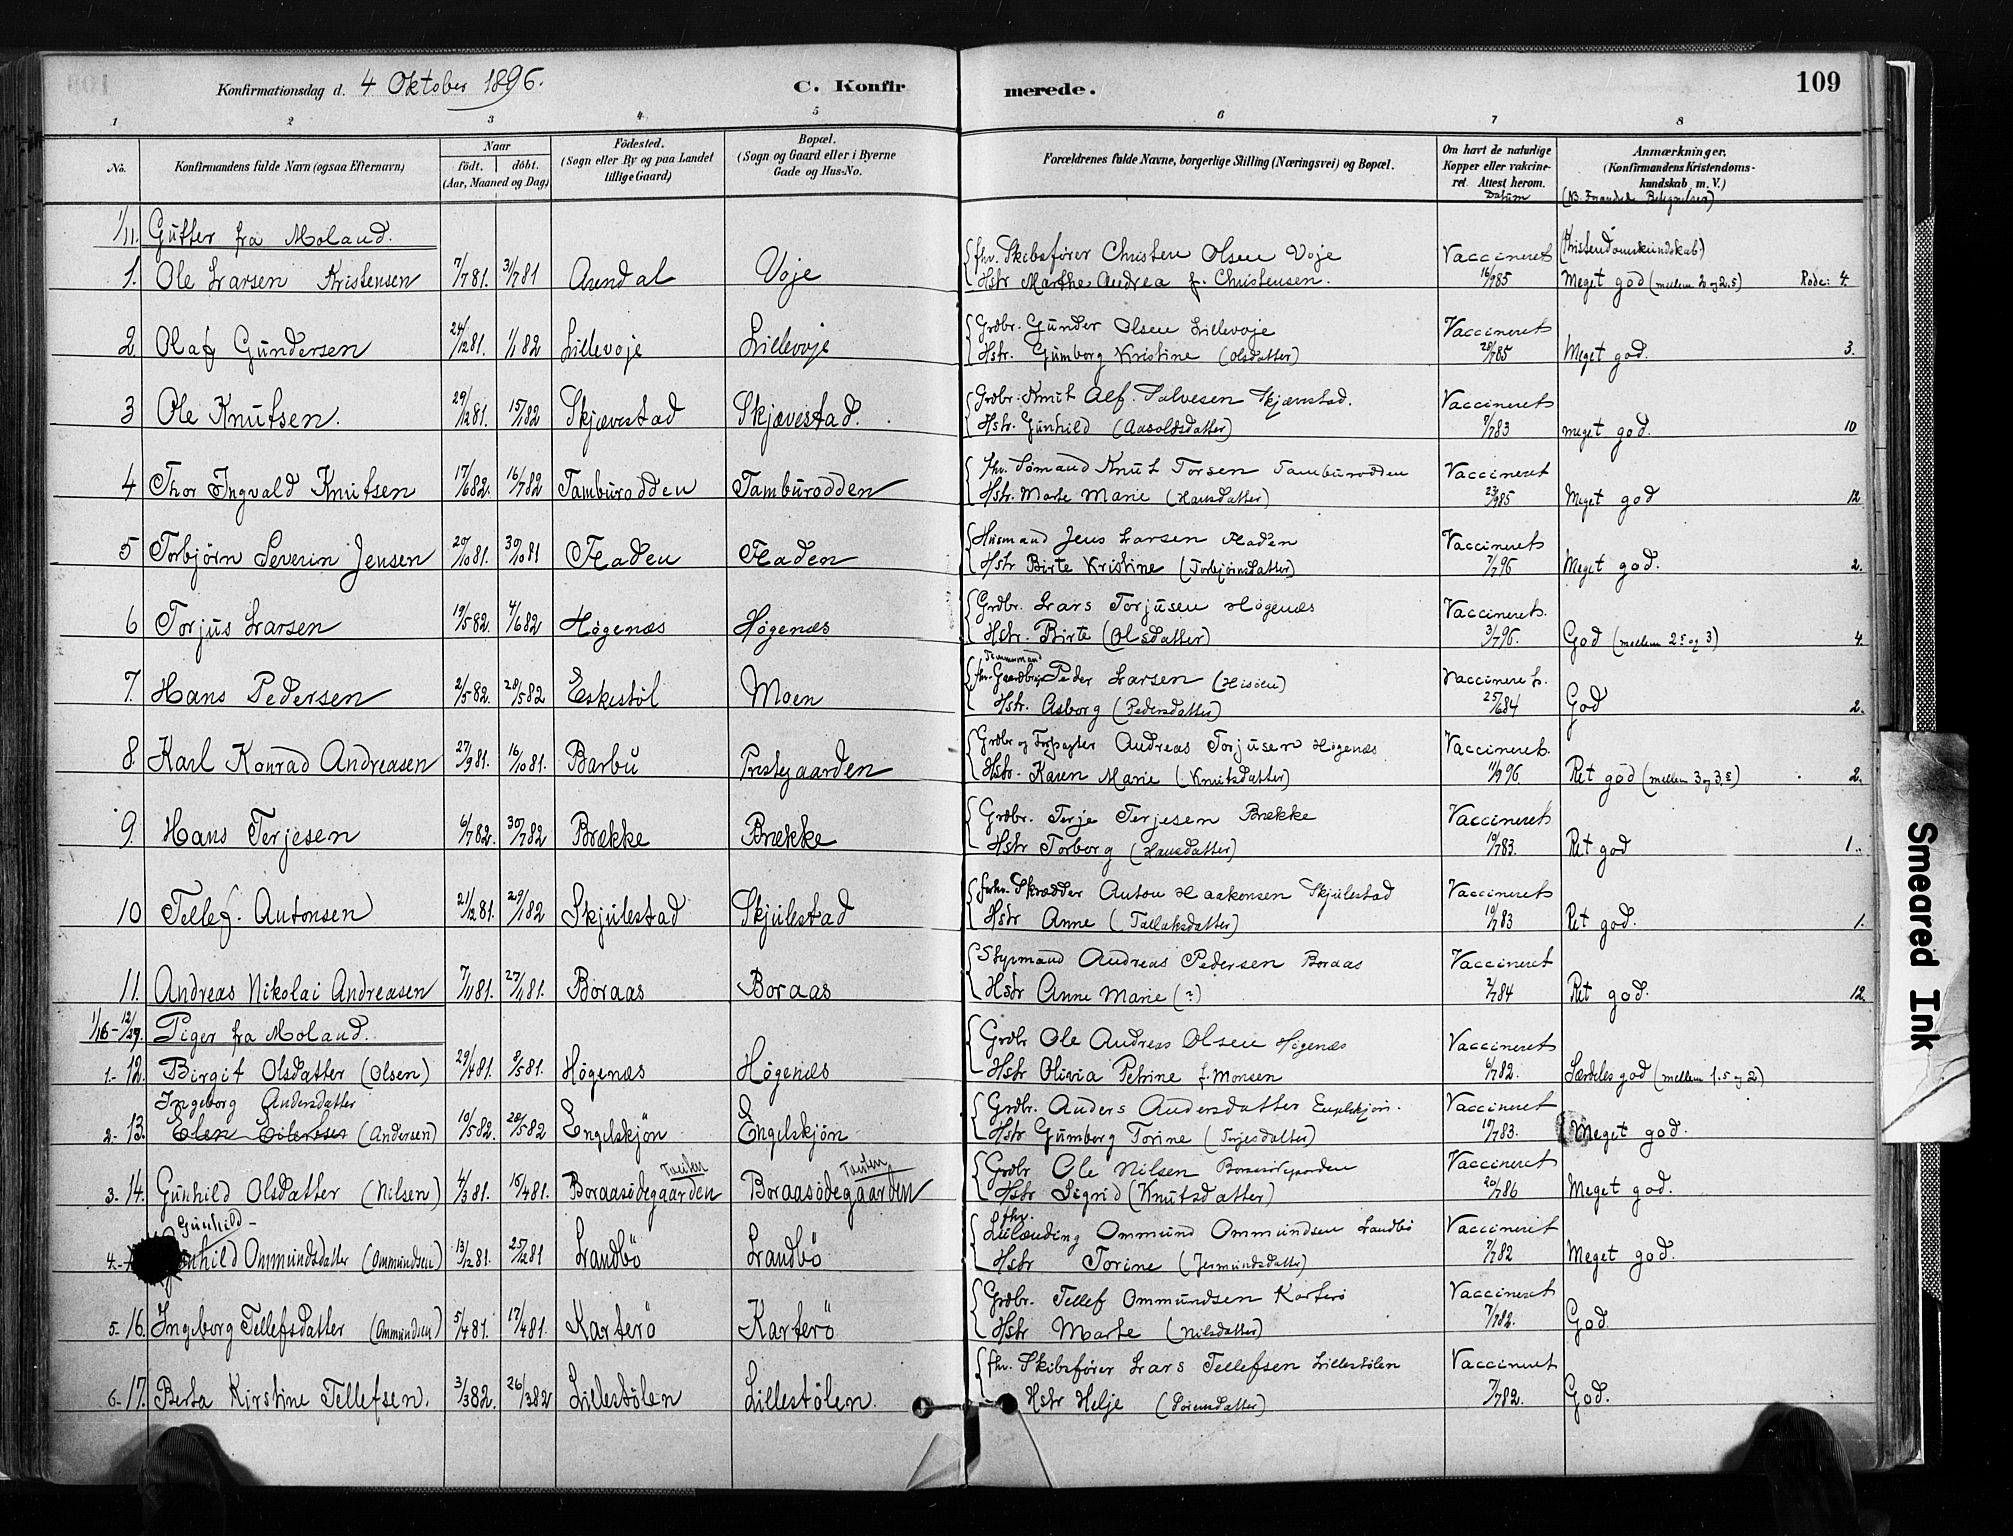 Konfirmationsdag d. 4 Oktober 1896.
C. Konfirmerede.
109
1 2 3 4 5 6 7 8
No.
Konfirmandens fulde Navn (ogsaa Efternavn)
Naar
födt. döbt.
(Aar, Maaned og Dag)
Födested.
(Sogn eller By og paa Landet
tillige Gaard)
Bopæl.
(Sogn og Gaard eller i Byerne
Gade og Hus-No.
Forældrenes fulde Navne, borgerlige Stilling (Næringsvei) og Bopæl.
Om havt de naturlige
Kopper eller vakcine-
ret. Attest herom.
Datum
Anmærkninger.
(Konfirmandens Kristendoms-
kundskab m. V.)
1/11. Gutter fra Moland.
(Kristendomskundskab)
fhv. Skibsfører Christen Olsen Voje
1. Ole Larsen Kristensen 7/7 81. 31/7 81 Arendal Voje Vaccineret
Hstr Marthe Andrea f. Christensen. 16/9 85 Meget god (mellem 2 og 2.5) Rode: 4.
Grdbr. Gunder Olsen Lillevoje Vaccineret
2 Olaf Gundersen 24/12 81. 1/1 82 Lillevoje Lillevoje
Hstr. Gumborg Kristine (Olsdatter) 28/7 85 Meget god. 3.
Grdbr. Knut Alf. Salvesen Skjævestad. Vaccineret
3 Ole Knutsen. 29/12 81. 15/1 82 Skjævestad Skjævestad.
Hstr. Gunhild (Aasoldsdatter) 9/7 83 meget god. 10
fhv. Sømand Knut Torsen Tamburodden Vaccineret
4 Thor Ingvald Knutsen 17/6 82. 16/7 82 Tamburodden Tamburodden
Hstr. Marte Marie (Hansdatter) 23/9 85 Meget god 12
Husmand Jens Larsen Fladen Vaccineret
5 Torbjörn Severin Jensen 20/10 81. 30/10 81 Fladen Fladen
Hstr Birte Kristine (Torbjörnsdatter) 7/7 96 Meget god. 2.
Grdbr. Lars Torjusen Høgenæs Vaccineret.
6 Torjus Larsen 19/5 82. 4/6 82 Høgenæs Høgenæs
Hstr. Birte (Olsdatter) 3/7 96. God (mellem 2.5 og 3) 4.
Tømmermand
fhv. Gaardbr. Peder Larsen (Hisöen) Vaccineret.
7. Hans Pedersen 2/5 82. 28/5 82 Eskestöl Moen
Hstr. Asborg (Pedersdatter) 25/6 84 God 2.
Grdbr og Forpagter Andreas Torjusen Høgenæs Vaccineret.
8. Karl Konrad Andreasen 27/9 81. 16/10 81. Barbu Prestegaarden
Hstr. Karen Marie (Knutsdatter) 11/9 96 Ret god (mellem 3 og 3.5) 2.
Grdbr. Terje Terjesen Brække Vaccineret
9. Hans Terjesen 6/7 82. 30/7 82 Brække Brække
Hstr Torborg (Hansdatter) 10/7 83. Ret god 1.
forhv. Skrædder Anton Haakonsen Skjulestad Vaccineret
10 Tellef. Antonsen 21/12 81. 29/1 82 Skjulestad Skjulestad
Hstr Anne (Tallaksdatter) 10/7 83 Ret god. 1.
Styrmand Andreas Pedersen Boraas Vaccineret
11. Andreas Nikolai Andreasen 7/11 81. 27/11 81. Boraas Boraas
Hstr Anne Marie (?) 2/7 84 Ret god. 12.
1/16-12/27. Piger fra Moland.
Grdbr Ole Andreas Olsen Høgenæs Vaccineret
1.- 12. Birgit Olsdatter (Olsen) 29/4 81. 8/5 81. Högenæs Högenæs
Hstr Olivia Petrine f. Monsen 6/7 82. Særdeles god (mellem 1.5 og 2)
Ingeborg Andersdatter
Grdbr. Anders Andersdatter Vaccineret
2- 13. (Andersen) 19/5 82. 28/5 82 Engelskjön Engelskjön
Hstr Gumborg Torine (Terjesdatter) 10/7 83. Meget god.
Grdbr Ole Nilsen Boraasödegaarden Vaccineret
3- 14. Gunhild Olsdatter (Nilsen) 4/3 81. 18/4 81. Boraasödegaarden Boraasödegaarden
Hstr Sigrid (Knutsdatter) 20/7 86 Meget god.
Gunhild
fhv.
Ommund Ommundsen Landbö Vaccineret
4.- Ommundsdatter (Ommundsen) 13/12 81. 25/12 81 Landbö Landbö
Hstr Torine (Jermundsdatter) 7/7 82 Meget god.
Grdbr. Tellef Ommundsen Karterö Vaccineret
5- 16. Ingeborg Tellefsdatter (Ommundsen) 5/4 81. 17/4 81. Karterö Karterö
Hstr Marte (Nilsdatter) 7/7 82. God.
fhv. Skibsfører Lars Tellefsen Lillestölen Vaccineret
6- 17. Berta Kirstine Tellefsen. 3/3 82. 26/3 82 Lillestölen Lillestölen.
Hstr Helje 7/7 82. God.
Smeared Ink